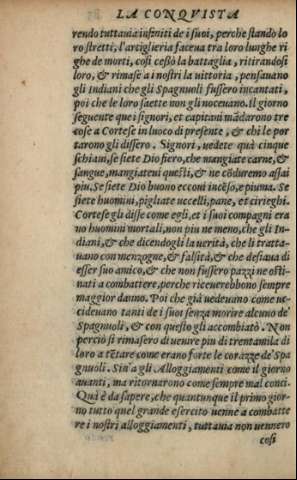 LA CONQVISTA
rendo tuttauia infiniti de i suoi, perche stando lo
ro stretti, l'artiglieria faceua tra loro lunghe ri
ghe de morti, cosi cessò la battaglia, ritirandosi
loro, & rimase a i nostri la uittoria, pensauano
gli Indiani che gli Spagnuoli fussero incantati,
poi che le loro saette non gli noceuano. Il giorno
seguente que i signori, et capitani mādarono tre
cose a Cortese in luoco di presente, & chi le por
tarono gli dissero. Signori, uedete quà cinque
schiaui, se siete Dio fiero, che mangiate carne, &
sangue, mangiateui questi, & ne cōduremo assai
piu. Se siete Dio buono ecconi incēso, e piuma. Se
siete huomini, pigliate uccelli, pane, et cirieghi.
Cortese gli disse come egli, et i suoi compagni era
no huomini mortali, non piu ne meno, che gli In-
diani, & che dicendogli la uerità, che li tratta-
uano con menzogne, & falsità, & che desiaua di
esser suo amico, & che non fussero pazzi ne osti-
nati a combattere, perche riceuerebbono sempre
maggior danno. Poi che già uedeuano come uc-
cideuano tanti de i suoi senza morire alcuno de'
Spagnuoli, & con questo gli accombiatò. Non
perciò si rimasero di uenire piu di trentamila di
loro a tētare come erano forte le corazze de' Spa
gnuoli. Sin'a gli Alloggiamenti come il giorno
auanti, ma ritornarono come sempre mal conci.
Qui è da sapere, che quantunque il primo gior-
no tutto quel grande esercito uenne a combatte
re i nostri alloggiamenti, tuttauia non uennero
cosi